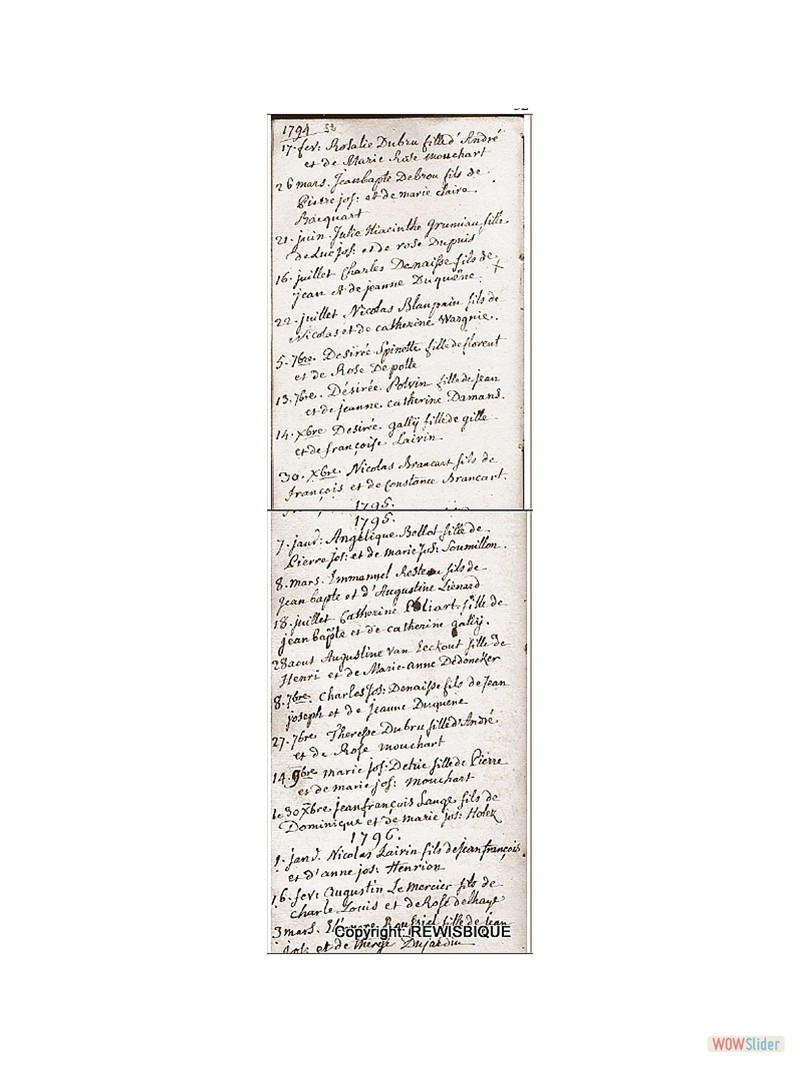 1794 52
17. fev: Rosalie Dubru fille d'André
et de Marie Rose mouchart
26 mars. Jeanbapte Debrou fils de
Pierre jos: et de marie claire
Bacquart
21. juin Julie Hiacinthe Grumiau fille
de Luc jos: et de rose Dupuis
16. juillet Charles Denaisse fils de
jean et de jeanne Duquêne.
22. juillet Nicolas Blaupain fils de
Nicolas et de catherine Wargnie.
5. 7bre. Desirée Spinette fille de florent
et de Rose Depotte
13. 7bre. Désirée Potvin fille de jean
et de jeanne catherine Damans.
14. Xbre Desirée gallÿ fille de gille
et de françoise Lairin
30. Xbre. Nicolas Brancart fils de
françois et de Constance Brancart.
1795.
1795.
7. janv: Angélique Bollot fille de
Pierre jos: et de marie Jos: Soumillon.
8. mars. Emmanuel fils de
jean bapte et d'Augustine Liénard
18. juillet Catherine fille de
jean bapte et de catherine gallÿ.
28 aout Augustine Van Eeckout fille de
Henri et de Marie-anne Dedoncker
8. 7bre. Charles Jos: Denaisse fils de Jean
joseph et de jeanne Duquene
27. 7bre Therese Dubru fille d'André.
et de Rose mouchart
14. 9bre marie jos: Detrie fille de Pierre
et de marie jos: mouchart
le 30 Xbre jean françois Lauge fils de
Dominique et de marie jos: Holex
1796.
1. janv. Nicolas Lairin fils de jean françois
et d'anne jos: Henrion
16. fev: augustin Le mercier fils de
charle Louis et de Rose delhaye
3 mars. fille de jean
jos: et de therese Dujardin
Copyright: REWISBIQUE
WOWSlider